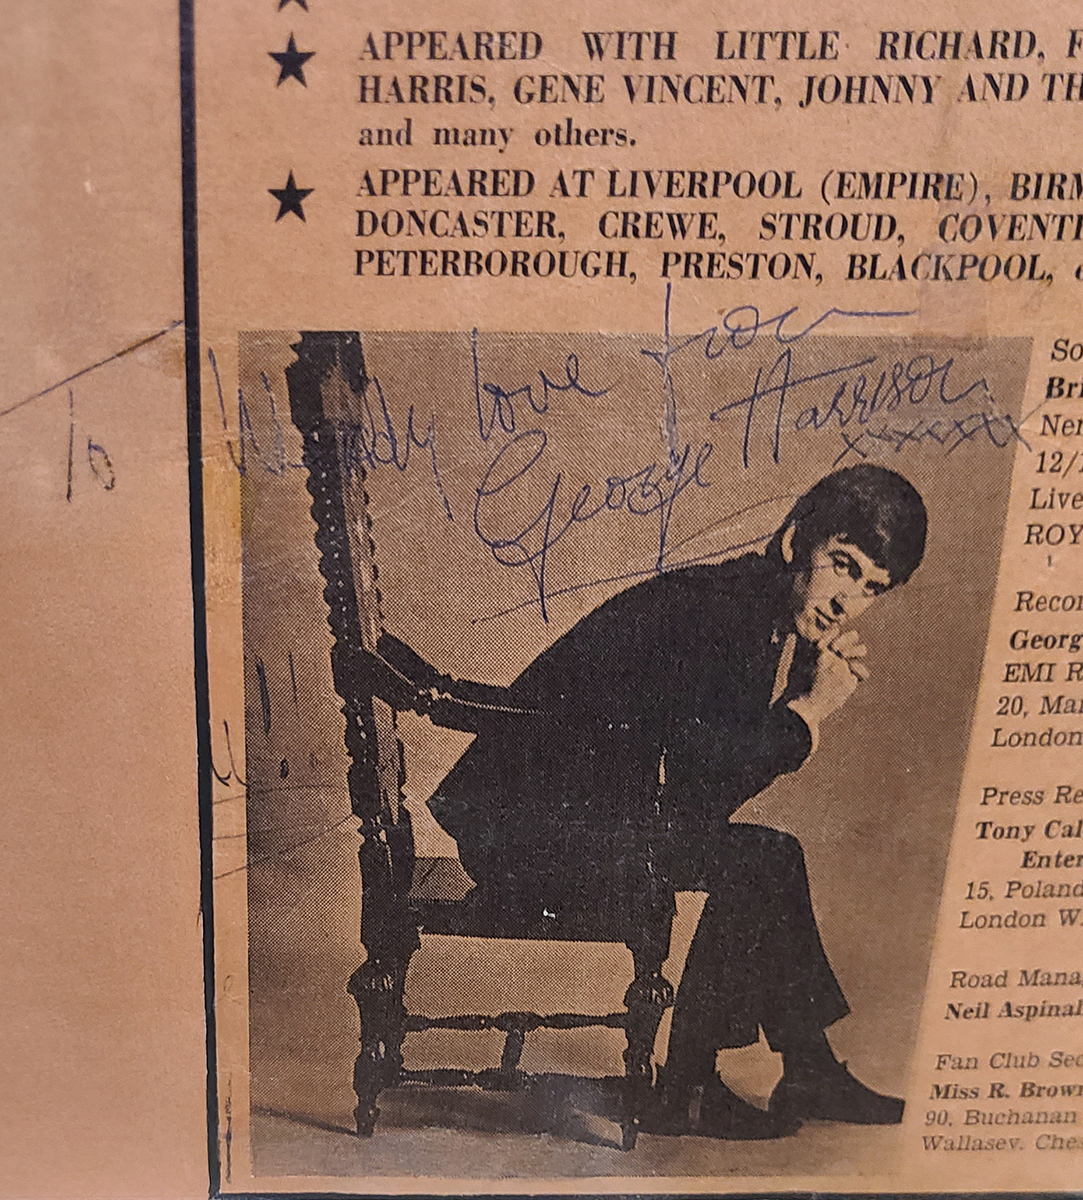 APPEARED WITH LITTLE RICHARD, F
HARRIS, GENE VINCENT, JOHNNY AND TH
and many others.
APPEARED AT LIVERPOOL (EMPIRE), BIRM
DONCASTER, CREWE, STROUD, COVENTR
PETERBOROUGH, PRESTON, BLACKPOOL,
To Wendy love from
George Harrison
xxxxxxx
So
Bri
Ner
12/
Live
ROY
Recor
Georg
EMI R
20, Man
London
Press Re
Tony Cal
Enter
15, Poland
London W.
Road Mana
Neil Aspinal
Fan Club Sec
Miss R. Brown
90, Buchanan
Wallasey, Ches